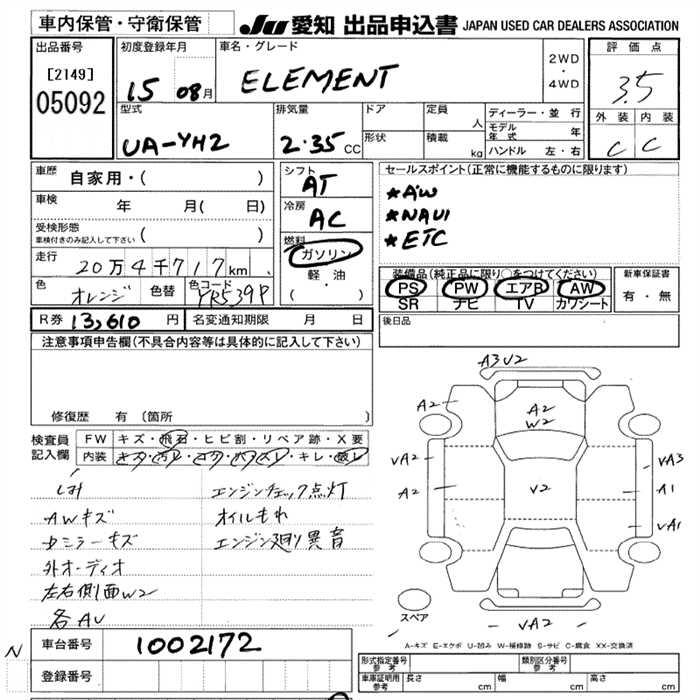 車内保管・守衛保管
JU 愛知 出品申込書 JAPAN USED CAR DEALERS ASSOCIATION
出品番号
[2149]
05092
初度登録年月
15 08月
車名・グレード
ELEMENT
2WD
・
4WD
評価点
3.5
外装 内装
C C
型式
UA-YH2
排気量
2.35 CC
ドア
形状
定員
人
積載
kg
ディーラー・並行
モデル年式 年
ハンドル 左・右
車歴
自家用・( )
車検
年 月( 日)
受検形態
車検付きのみ記入して下さい
( )
走行
20万4千717km
色
オレンジ
色替
色コード
YR539P
シフト
AT
冷房
AC
燃料
ガソリン
軽油
( ・ )
セールスポイント(正常に機能するものに限ります)
★AW
★NAVI
★ETC
装備品(純正品に限り○をつけてください)
PS PW エアB AW
SR ナビ TV カワシート
新車保証書
有・無
R券 13,610 円
名変通知期限 月 日
後日品
注意事項申告欄(不具合内容等は具体的に記入して下さい)
修復歴 有(箇所 )
検査員記入欄
FW キズ・飛石・ヒビ割・リペア跡・X要
内装 キズ・汚レ・コゲ・ハズレ・キレ・破レ
しみ
エンジンチェック点灯
AWキズ
オイルもれ
中ミラーキズ
エンジン廻り異音
外オーディオ
左右側面W2
各AU
A3U2
A2
A2
W2
VA2
VA3
A2
V2
A1
VA1
VA2
スペア
A-キズ E-エクボ U-凹み W-補修跡 S-サビ C-腐食 XX-交換済
N
車台番号
1002172
登録番号
形式指定番号 参考
類別区分番号 参考
車庫証明用 参考
長さ cm
幅 cm
高さ cm